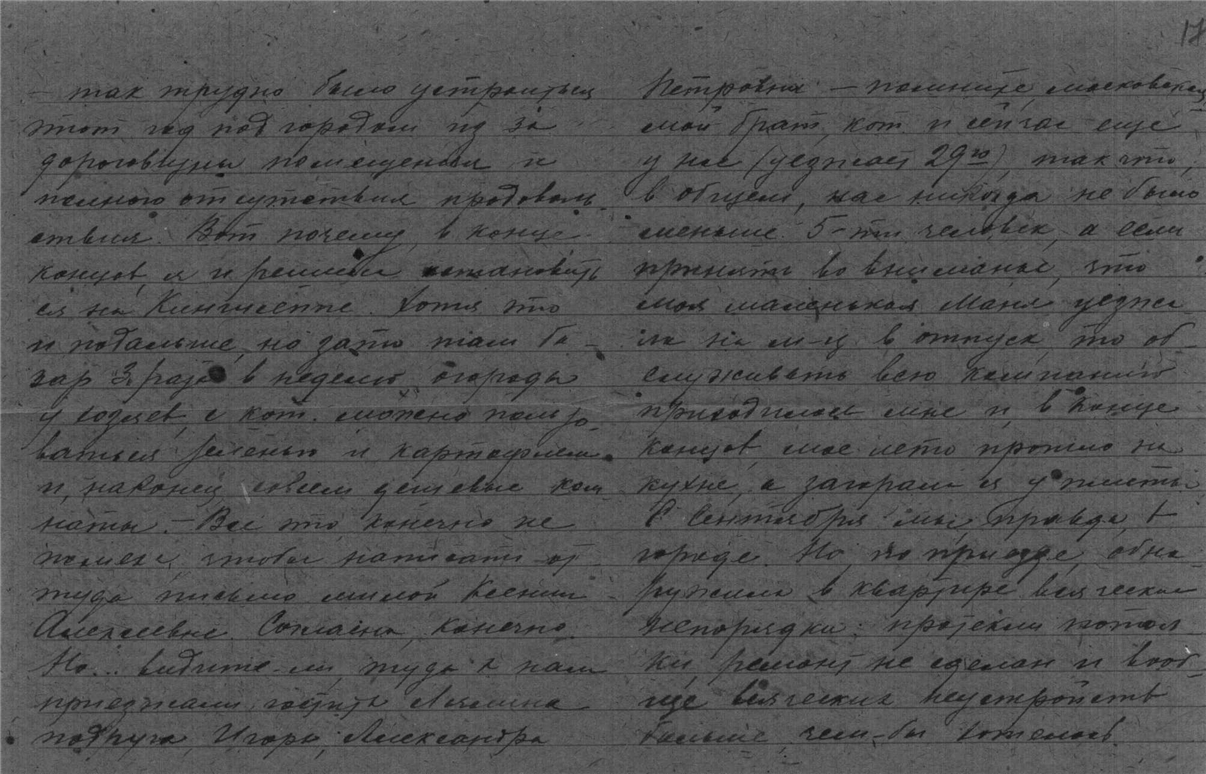 17
– так трудно было устроиться
этот год под городом из за
дороговизны помещения и
полного отсутствия продоволь-
ствия. Вот почему, в конце
концов, я и решила остановить
ся на Кингисеппе. Хотя это
и подальше, но зато там ба-
зар 3 раза в неделю, огороды
у хозяев, с кот. можно пользо-
ваться зеленью и картофелем
и, наконец, совсем дешевые ком
наты. – Все это конечно не
помеха, чтобы написать от
туда письмо милой Ксении
Алексеевне. Согласна, конечно.
Но... видите-ли, туда к нам
приезжали гостить
подруга, Игорь, Александра
Петровна – помните, московская,
мой брат, кот. и сейчас еще
у нас (уезжает 29го), так что,
в общем, нас никогда не было
меньше 5-ти человек, а если
принять во внимание, что
моя маленькая Маня уезжа
ла на м-ц в отпуск, то об-
служивать всю компанию
приходилось мне и, в конце
концов, мое лето прошло на
кухне, а загорала я у плиты.
С сентября мы, правда, в
городе. Но, по приезде, обна
ружила в квартире всяческие
непорядки: протекли потол
ки, ремонт не сделан и вооб-
ще всяческих неустройств
больше, чем-бы хотелось.